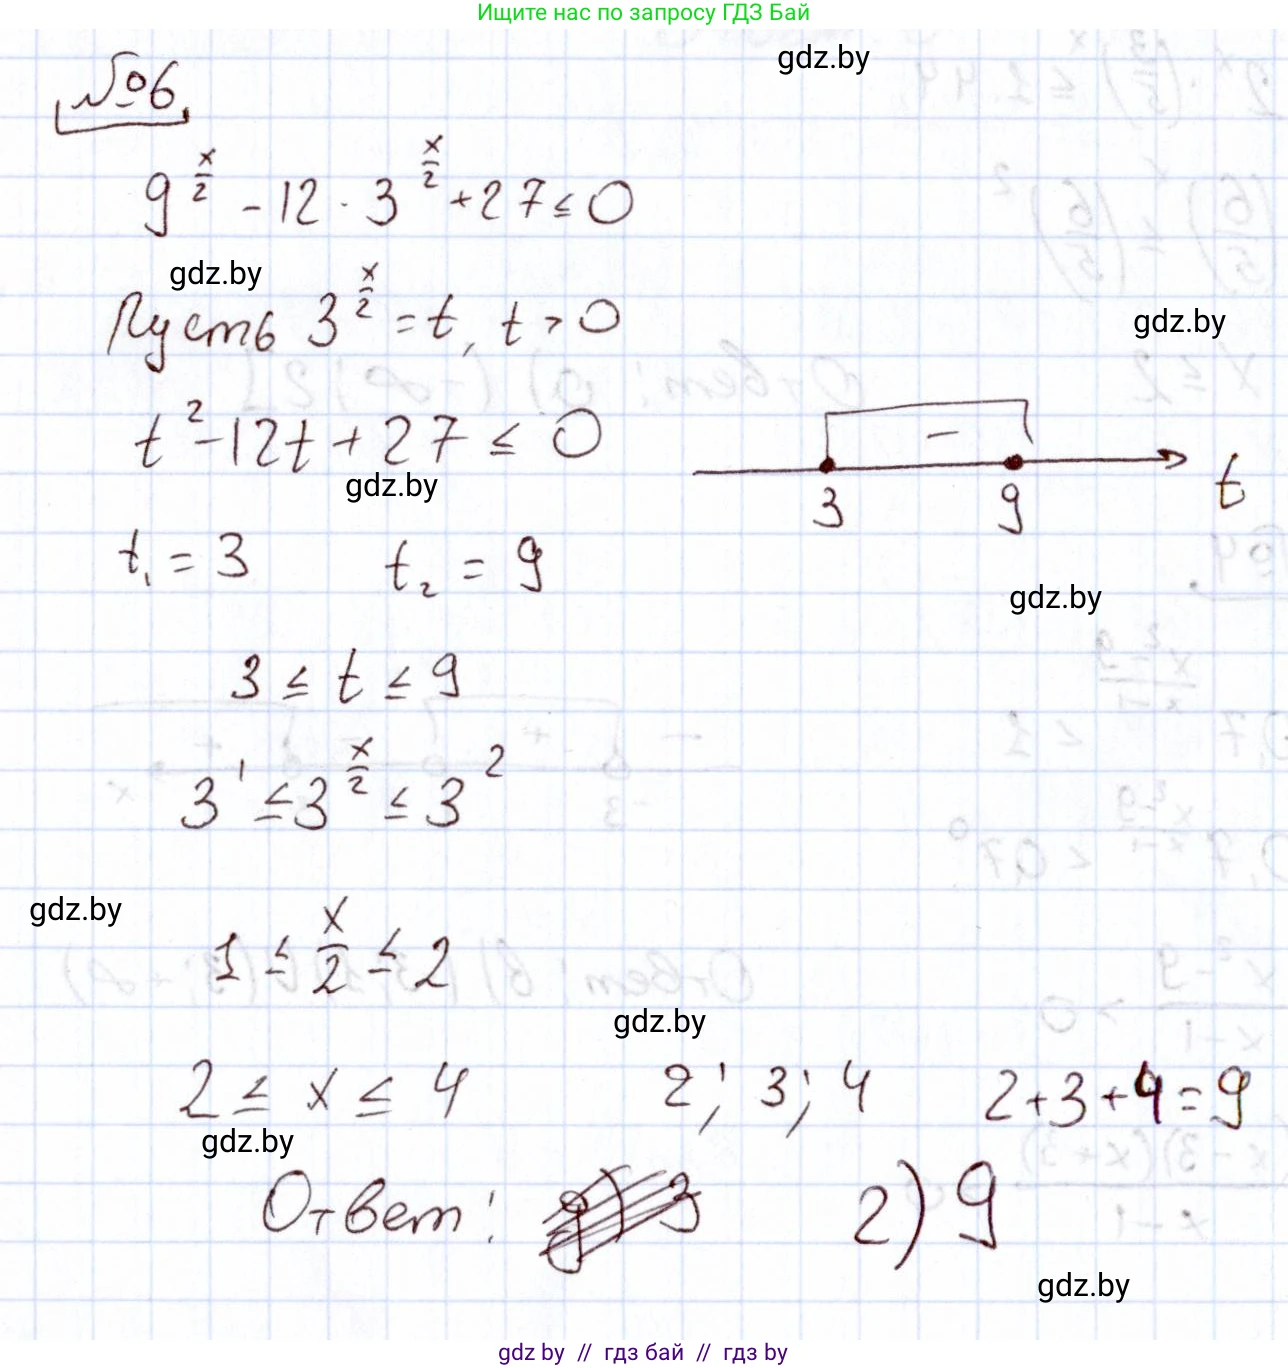 Ищите нас по запросу ГДЗ Бай
gdz.by
№6
9^(x/2) - 12 · 3^(x/2) + 27 ≤ 0
gdz.by
Пусть 3^(x/2) = t, t > 0
gdz.by
t² - 12t + 27 ≤ 0
gdz.by
- 
3 9 t
t₁ = 3 t₂ = 9
gdz.by
3 ≤ t ≤ 9
3¹ ≤ 3^(x/2) ≤ 3²
gdz.by
1 ≤ x/2 ≤ 2
gdz.by
2 ≤ x ≤ 4 2; 3; 4 2+3+4=9
gdz.by
Ответ: 2) 9
gdz.by
gdz by // гдз бай // гдз by